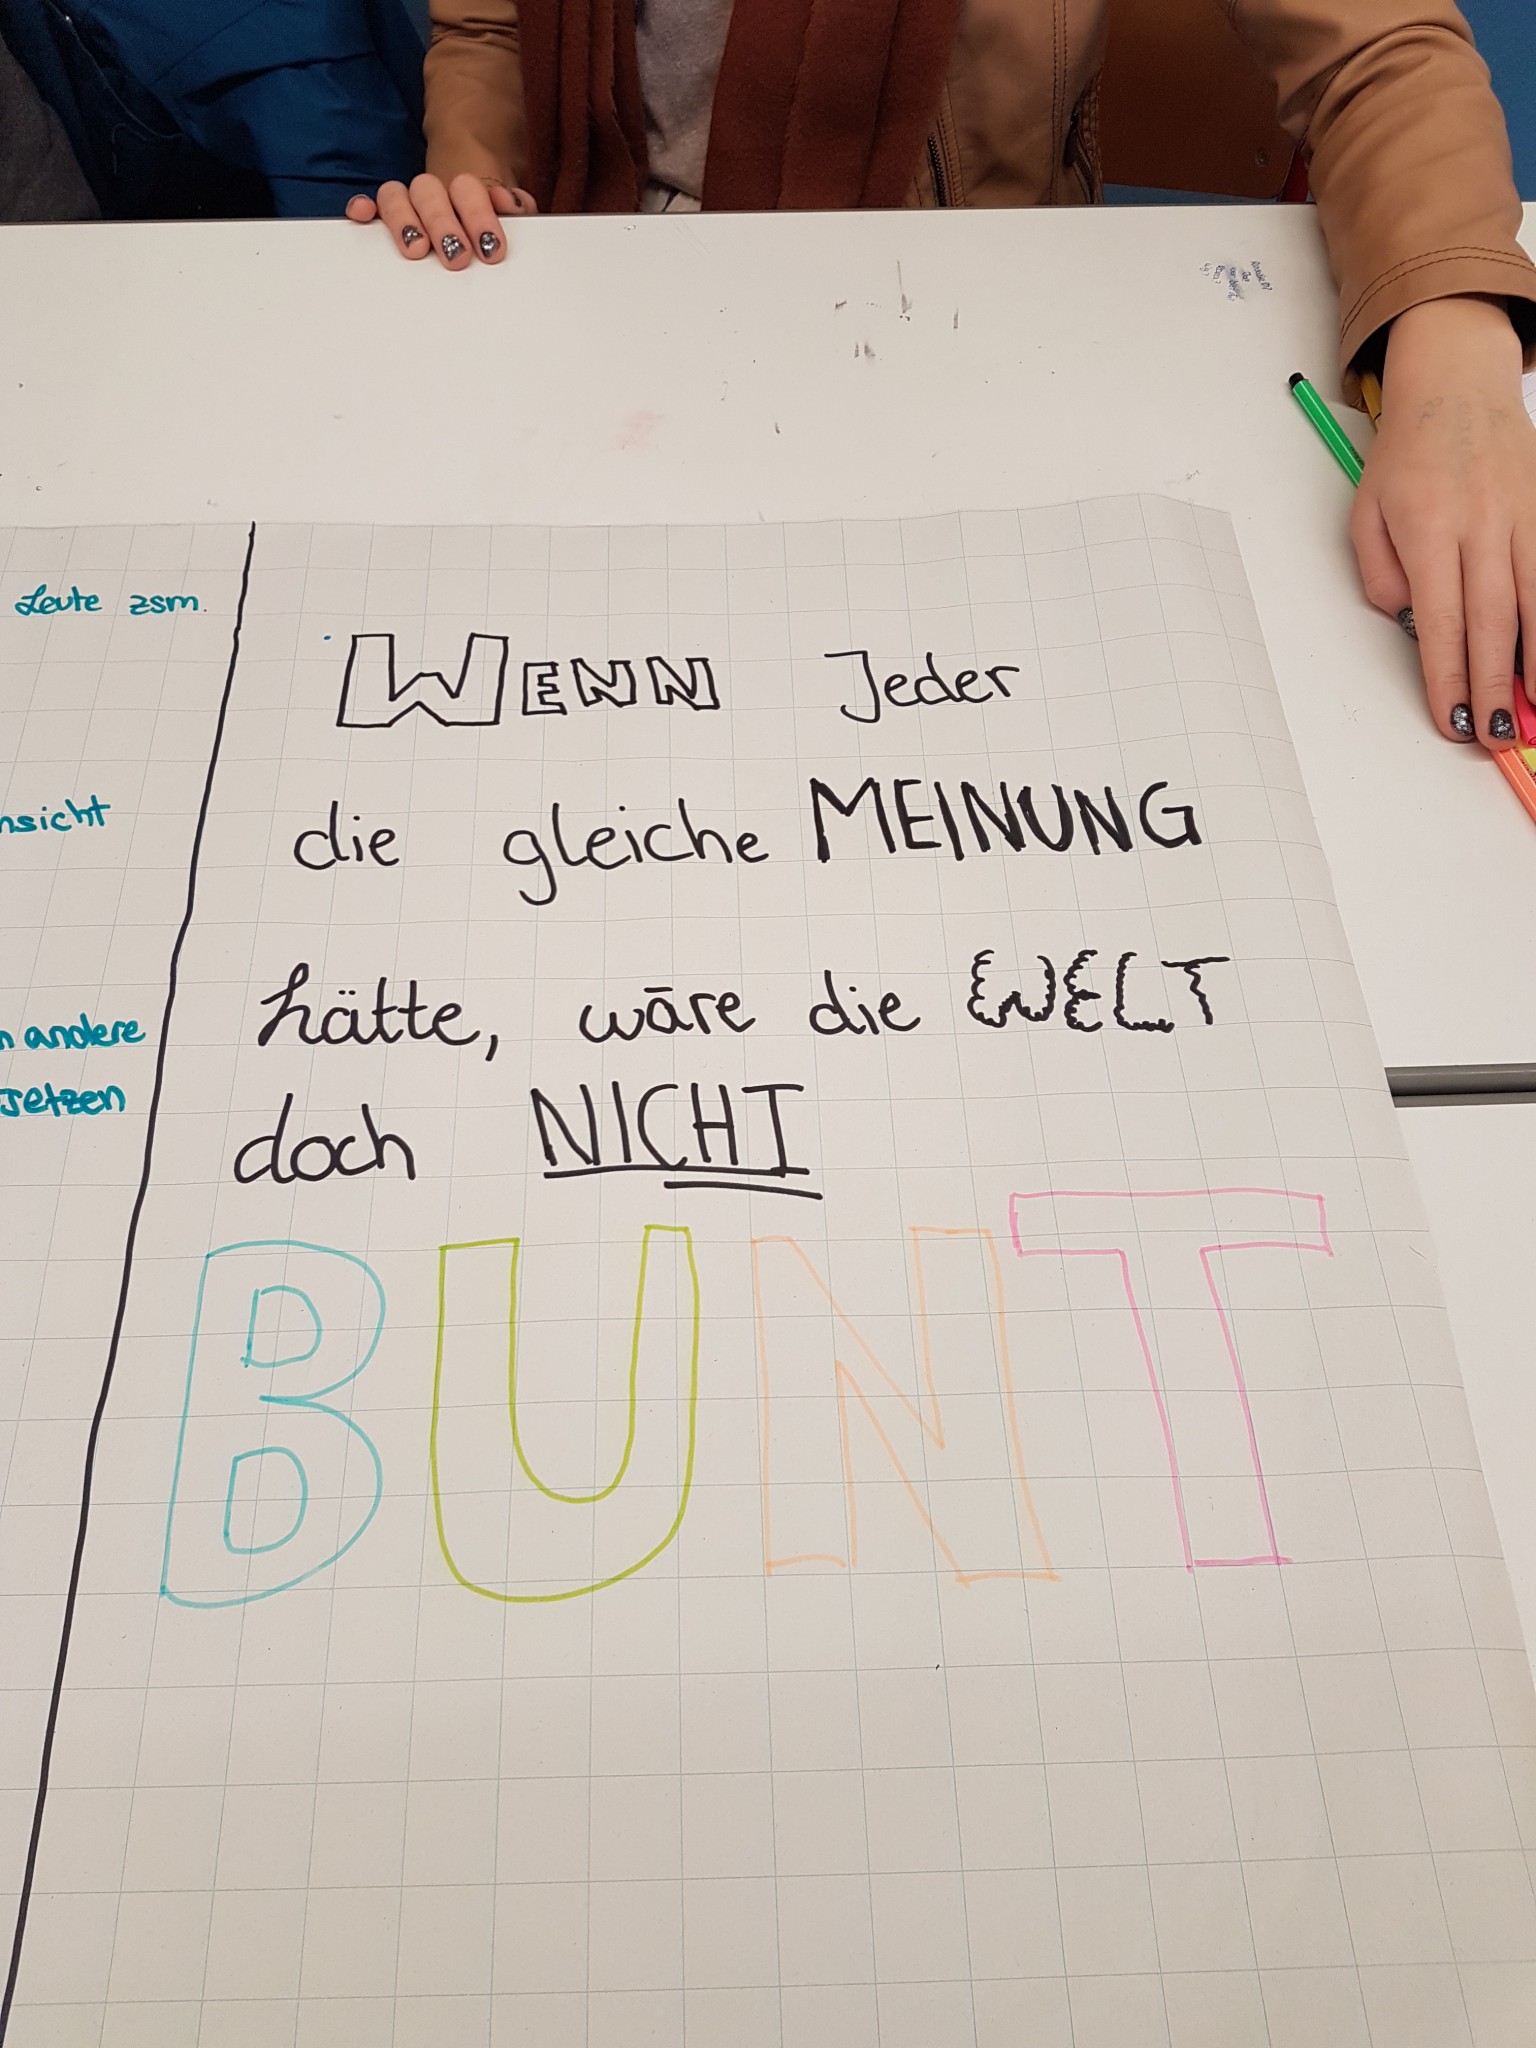 Leute zsm.
nsicht
n andere
setzen
WENN Jeder
die gleiche MEINUNG
hätte, wäre die WELT
doch NICHT
BUNT